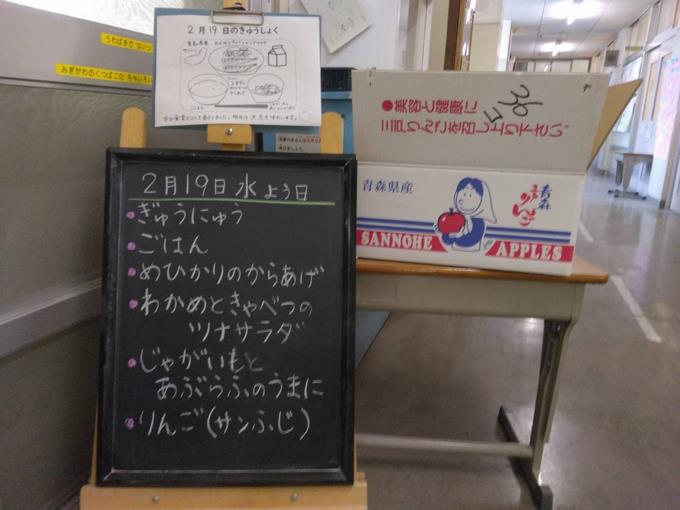 うわばきで はいっ
みぎがわのくつばこの
2月19日のきゅうしょく
2月19日 水 よう日
・ぎゅうにゅう
・ごはん
・めひかりのからあげ
・わかめときゃべつの
ツナサラダ
・じゃがいもと
あぶらふのうまに
・りんご(サンふじ)
●美容と健康に
三戸りんごを召し上り下さい。
36
青森県産
青森
りんご
SANNOHE
APPLES